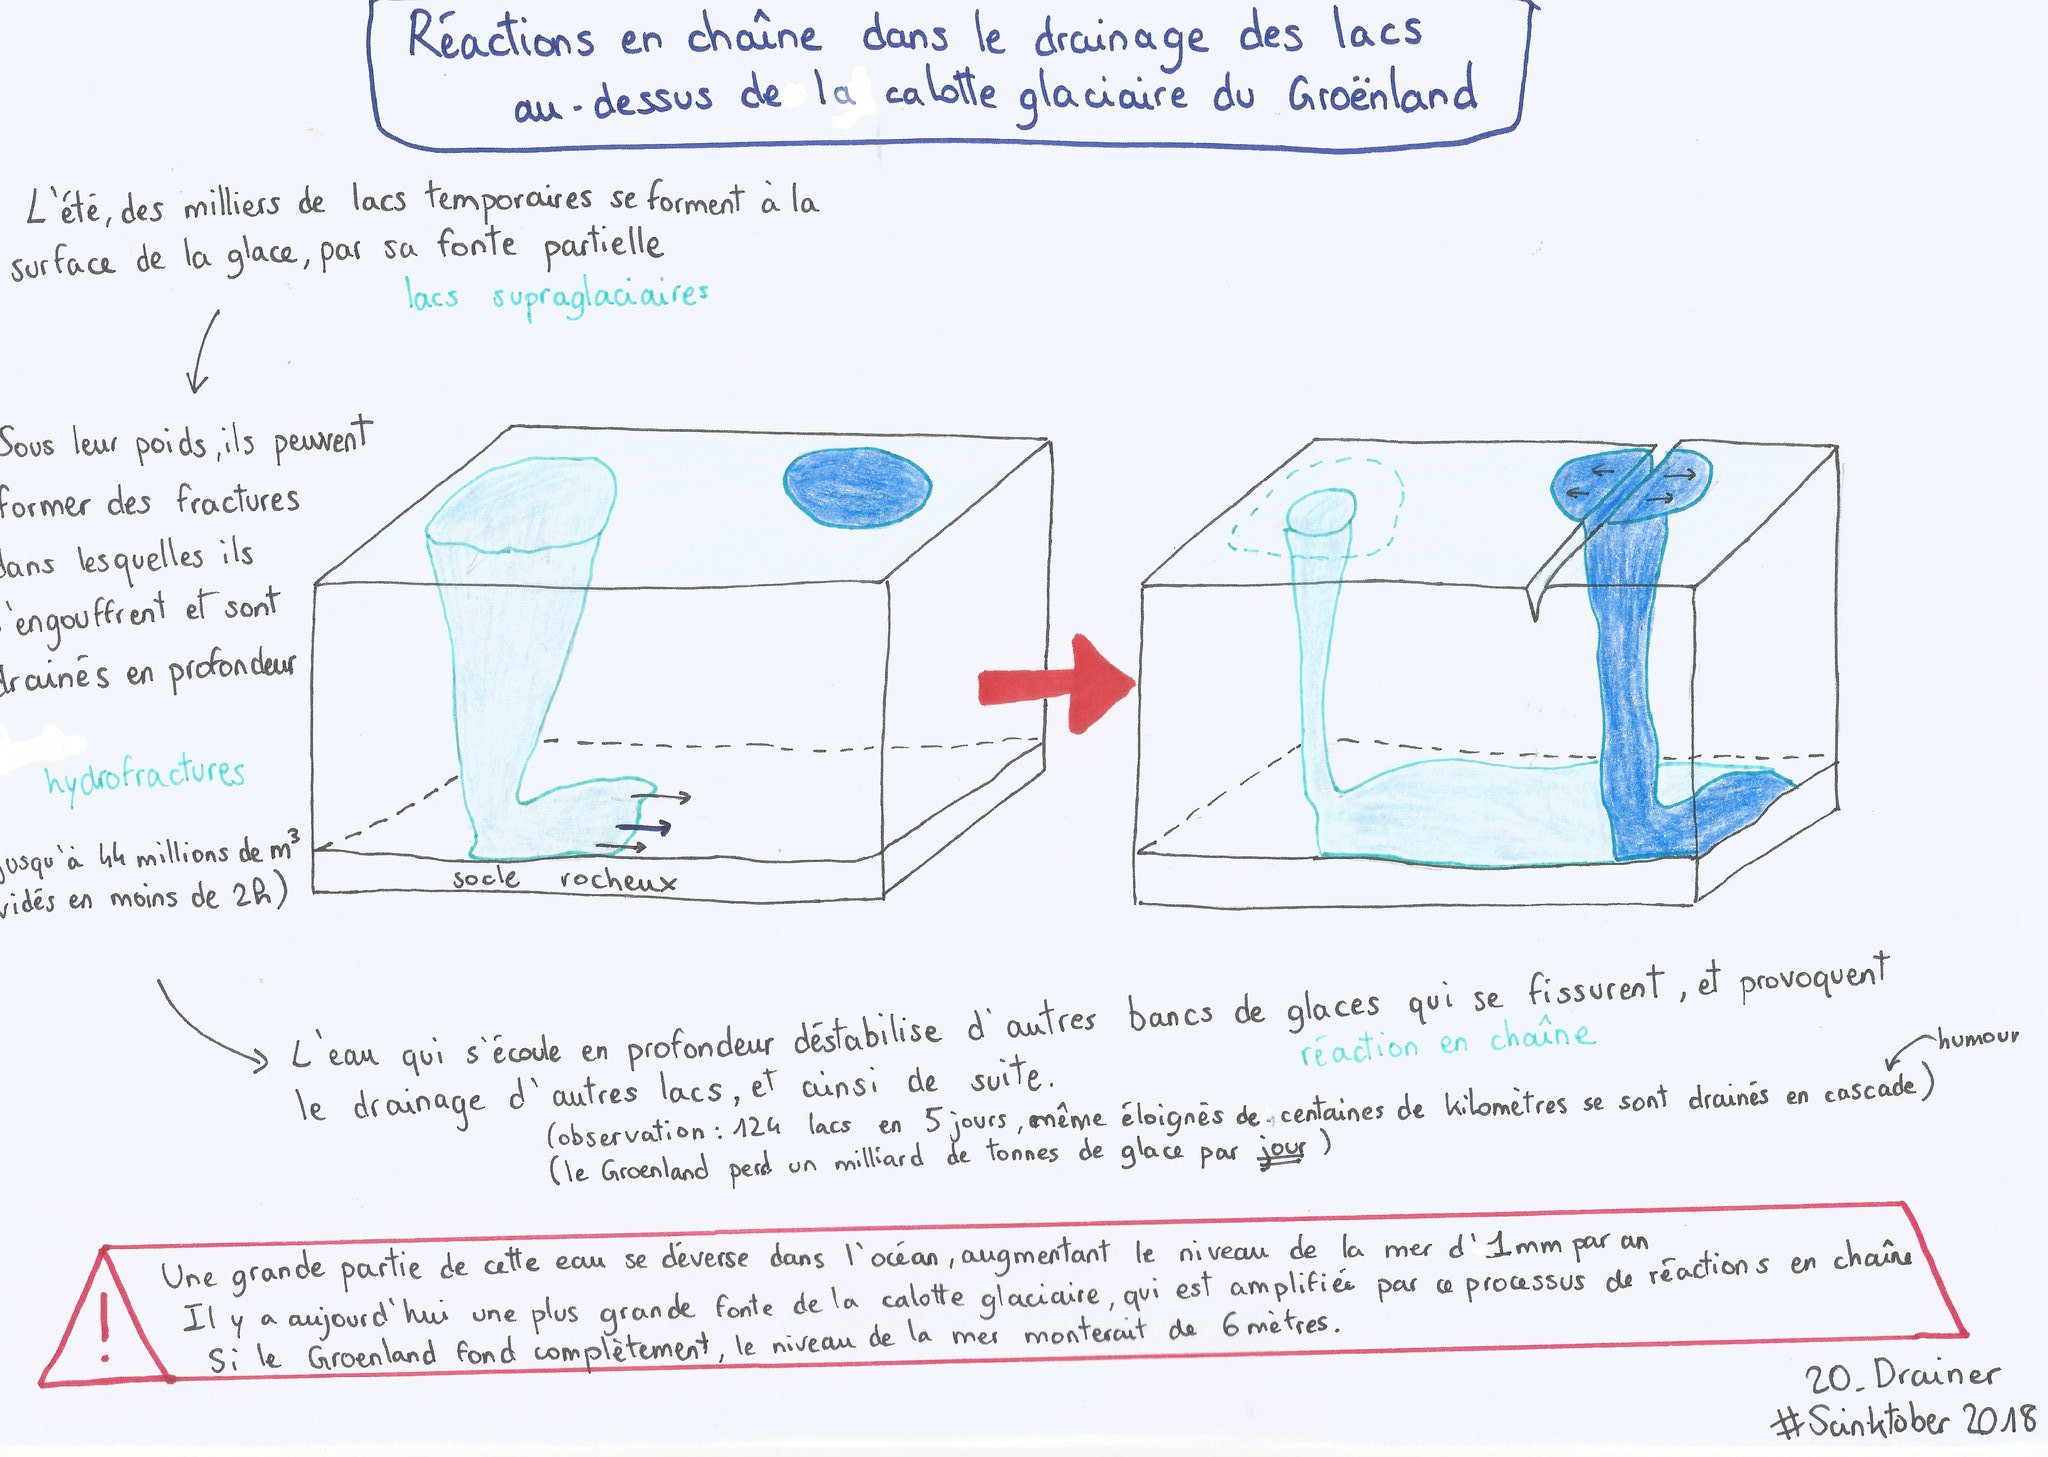 Réactions en chaîne dans le drainage des lacs
au-dessus de la calotte glaciaire du Groënland
L'été, des milliers de lacs temporaires se forment à la
surface de la glace, par sa fonte partielle
lacs supraglaciaires
Sous leur poids, ils peuvent
former des fractures
dans lesquelles ils
s'engouffrent et sont
drainés en profondeur
hydrofractures
jusqu'à 44 millions de m³
vidés en moins de 2h)
socle rocheux
L'eau qui s'écoule en profondeur déstabilise d'autres bancs de glaces qui se fissurent, et provoquent
réaction en chaîne
le drainage d'autres lacs, et ainsi de suite.
humour
(observation : 124 lacs en 5 jours, même éloignés de centaines de kilomètres se sont drainés en cascade)
(le Groenland perd un milliard de tonnes de glace par jour)
!
Une grande partie de cette eau se déverse dans l'océan, augmentant le niveau de la mer d'1mm par an
Il y a aujourd'hui une plus grande fonte de la calotte glaciaire, qui est amplifiée par ce processus de réactions en chaîne
Si le Groenland fond complètement, le niveau de la mer monterait de 6 mètres.
20_Drainer
#Scinktober 2018